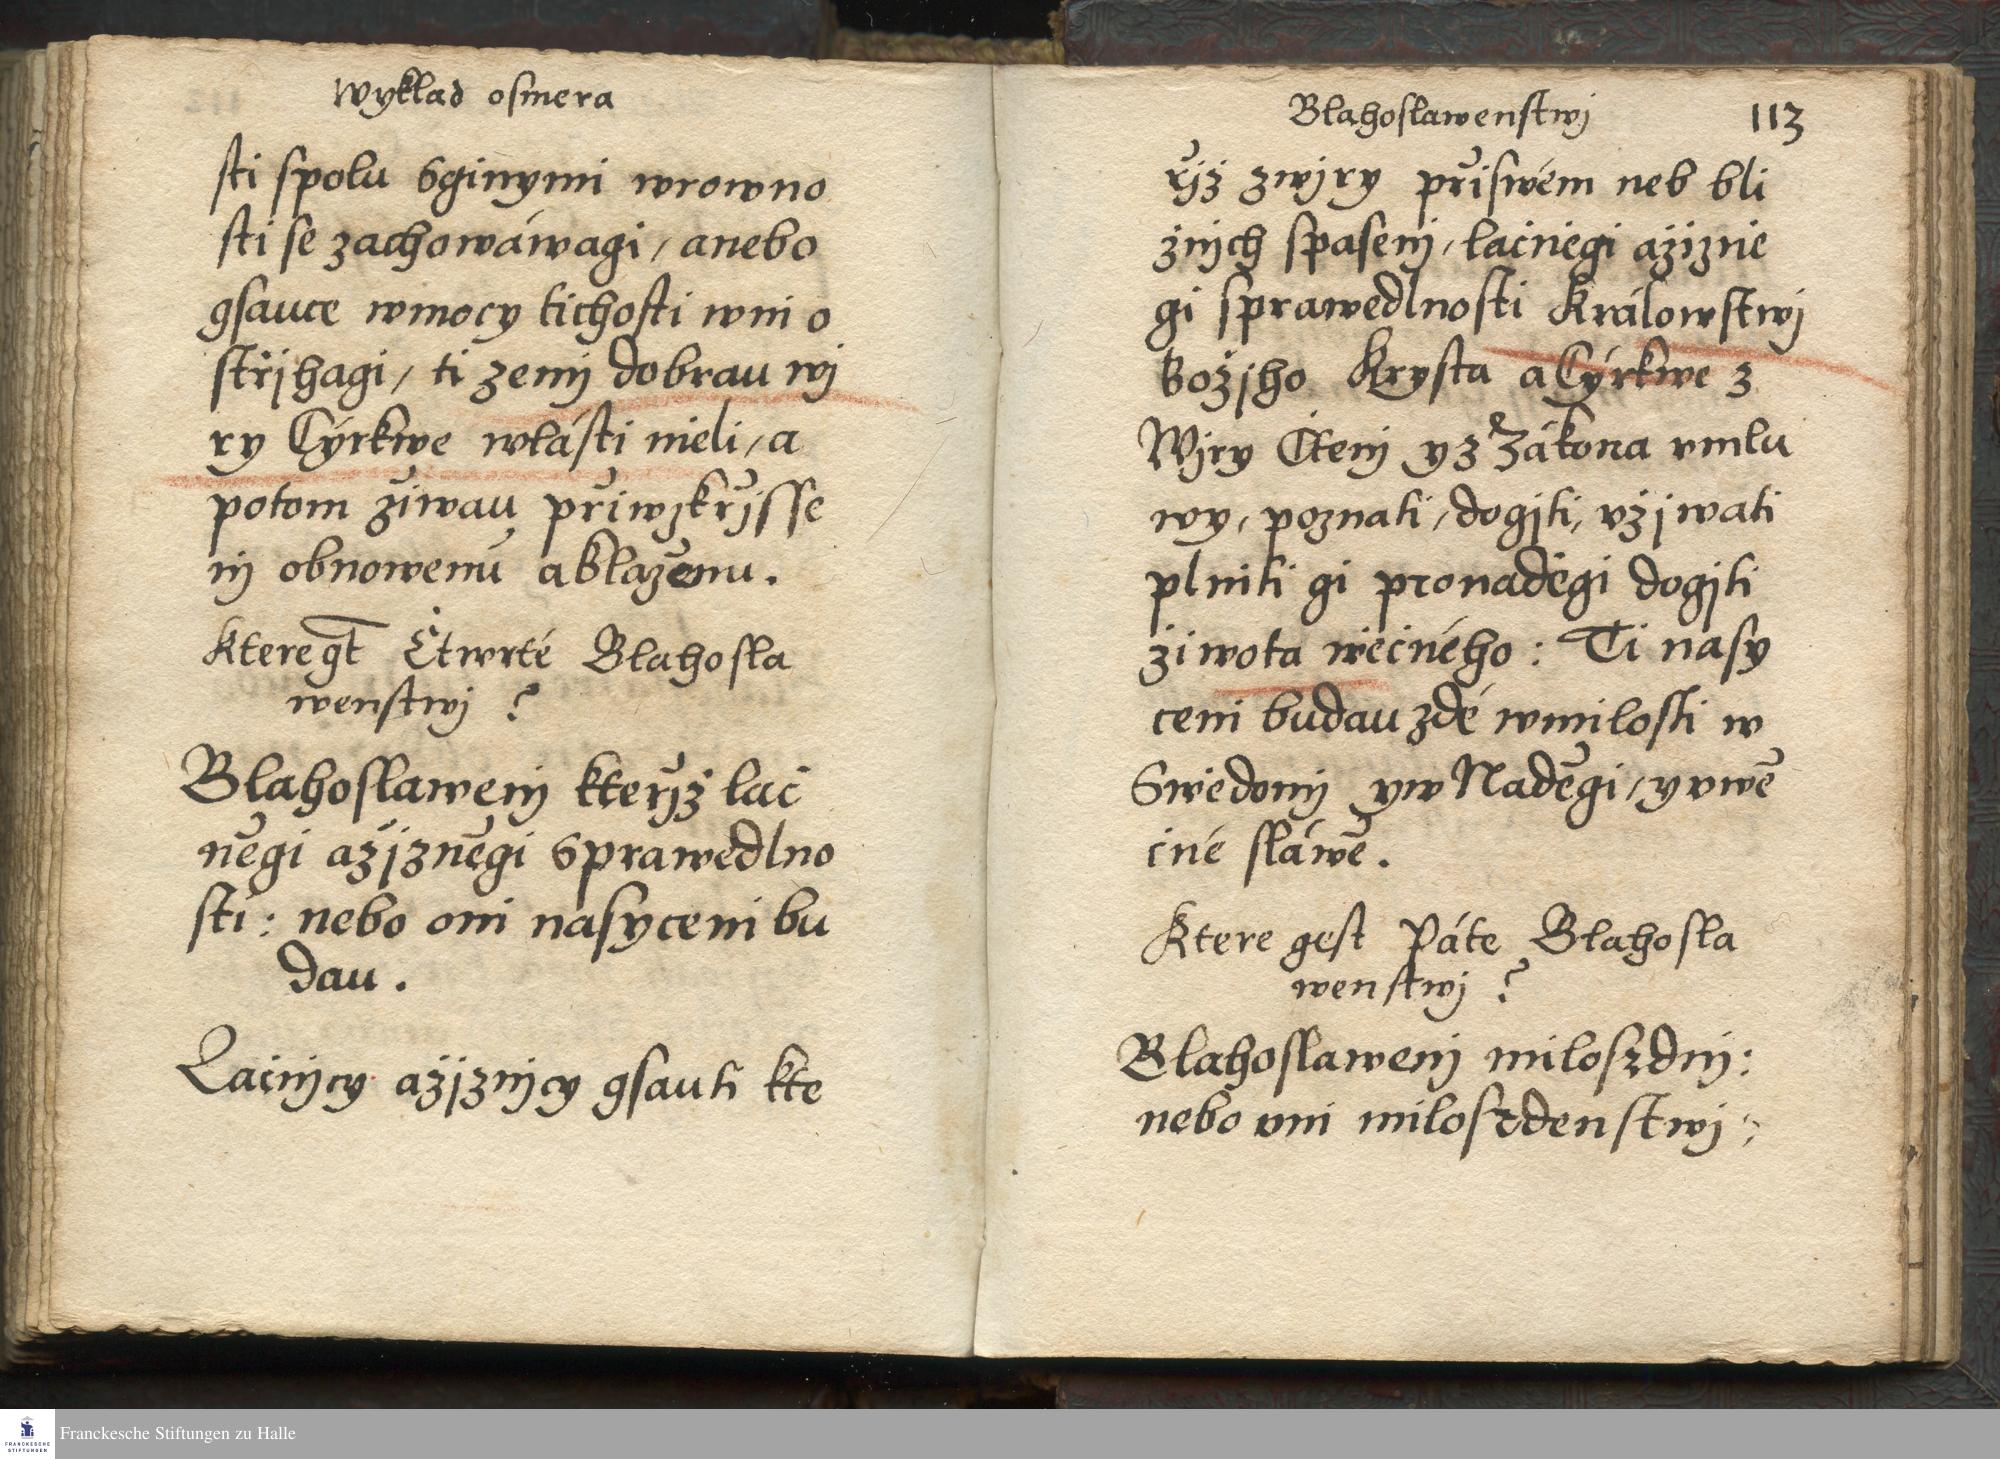 Wyklad osmera
sti spolu Sginymi wrowno
sti se zachowáwagi, anebo
gsauce wmocy tichosti wni o
střjhagi, ti zemj dobrau wj
ry Cýrkwe wlásti nieli, a
potom žiwau přiwzkřjsse
nj obnowenú ablaženu.
Ktere gt Čtwrté Blahosla
wenstwj ?
Blahoslawenj kteřjž lač
něgi ažjzněgi Sprawedlno
sti: nebo oni nasyceni bu
dau.
Lačnjcy ažjznjcy gsauti kte
Blahoslawenstwj 113
řjž zwjry při swém neb bli
žnjch spasenj, lačniegi ažiznie
gi sprawedlnosti Králowstwj
Božjho Krysta a Cýrkwe z
Wjry Čtenj y z Zákona vmlu
wy, poznati, dogjti, vžjwati
plniti gi pronaděgi dogjti
žiwota wěčného: Ti nasy
ceni budau zdé wmilosti w
Swědomj yw Naděgi, y vwě
čné sláwě.
Ktere gest Páte Blahosla
wenstwj ?
Blahoslawenj miloszdnj:
nebo oni miloszdenstwj:
Franckesche Stiftungen zu Halle
FRANCKESCHE
STIFTUNGEN